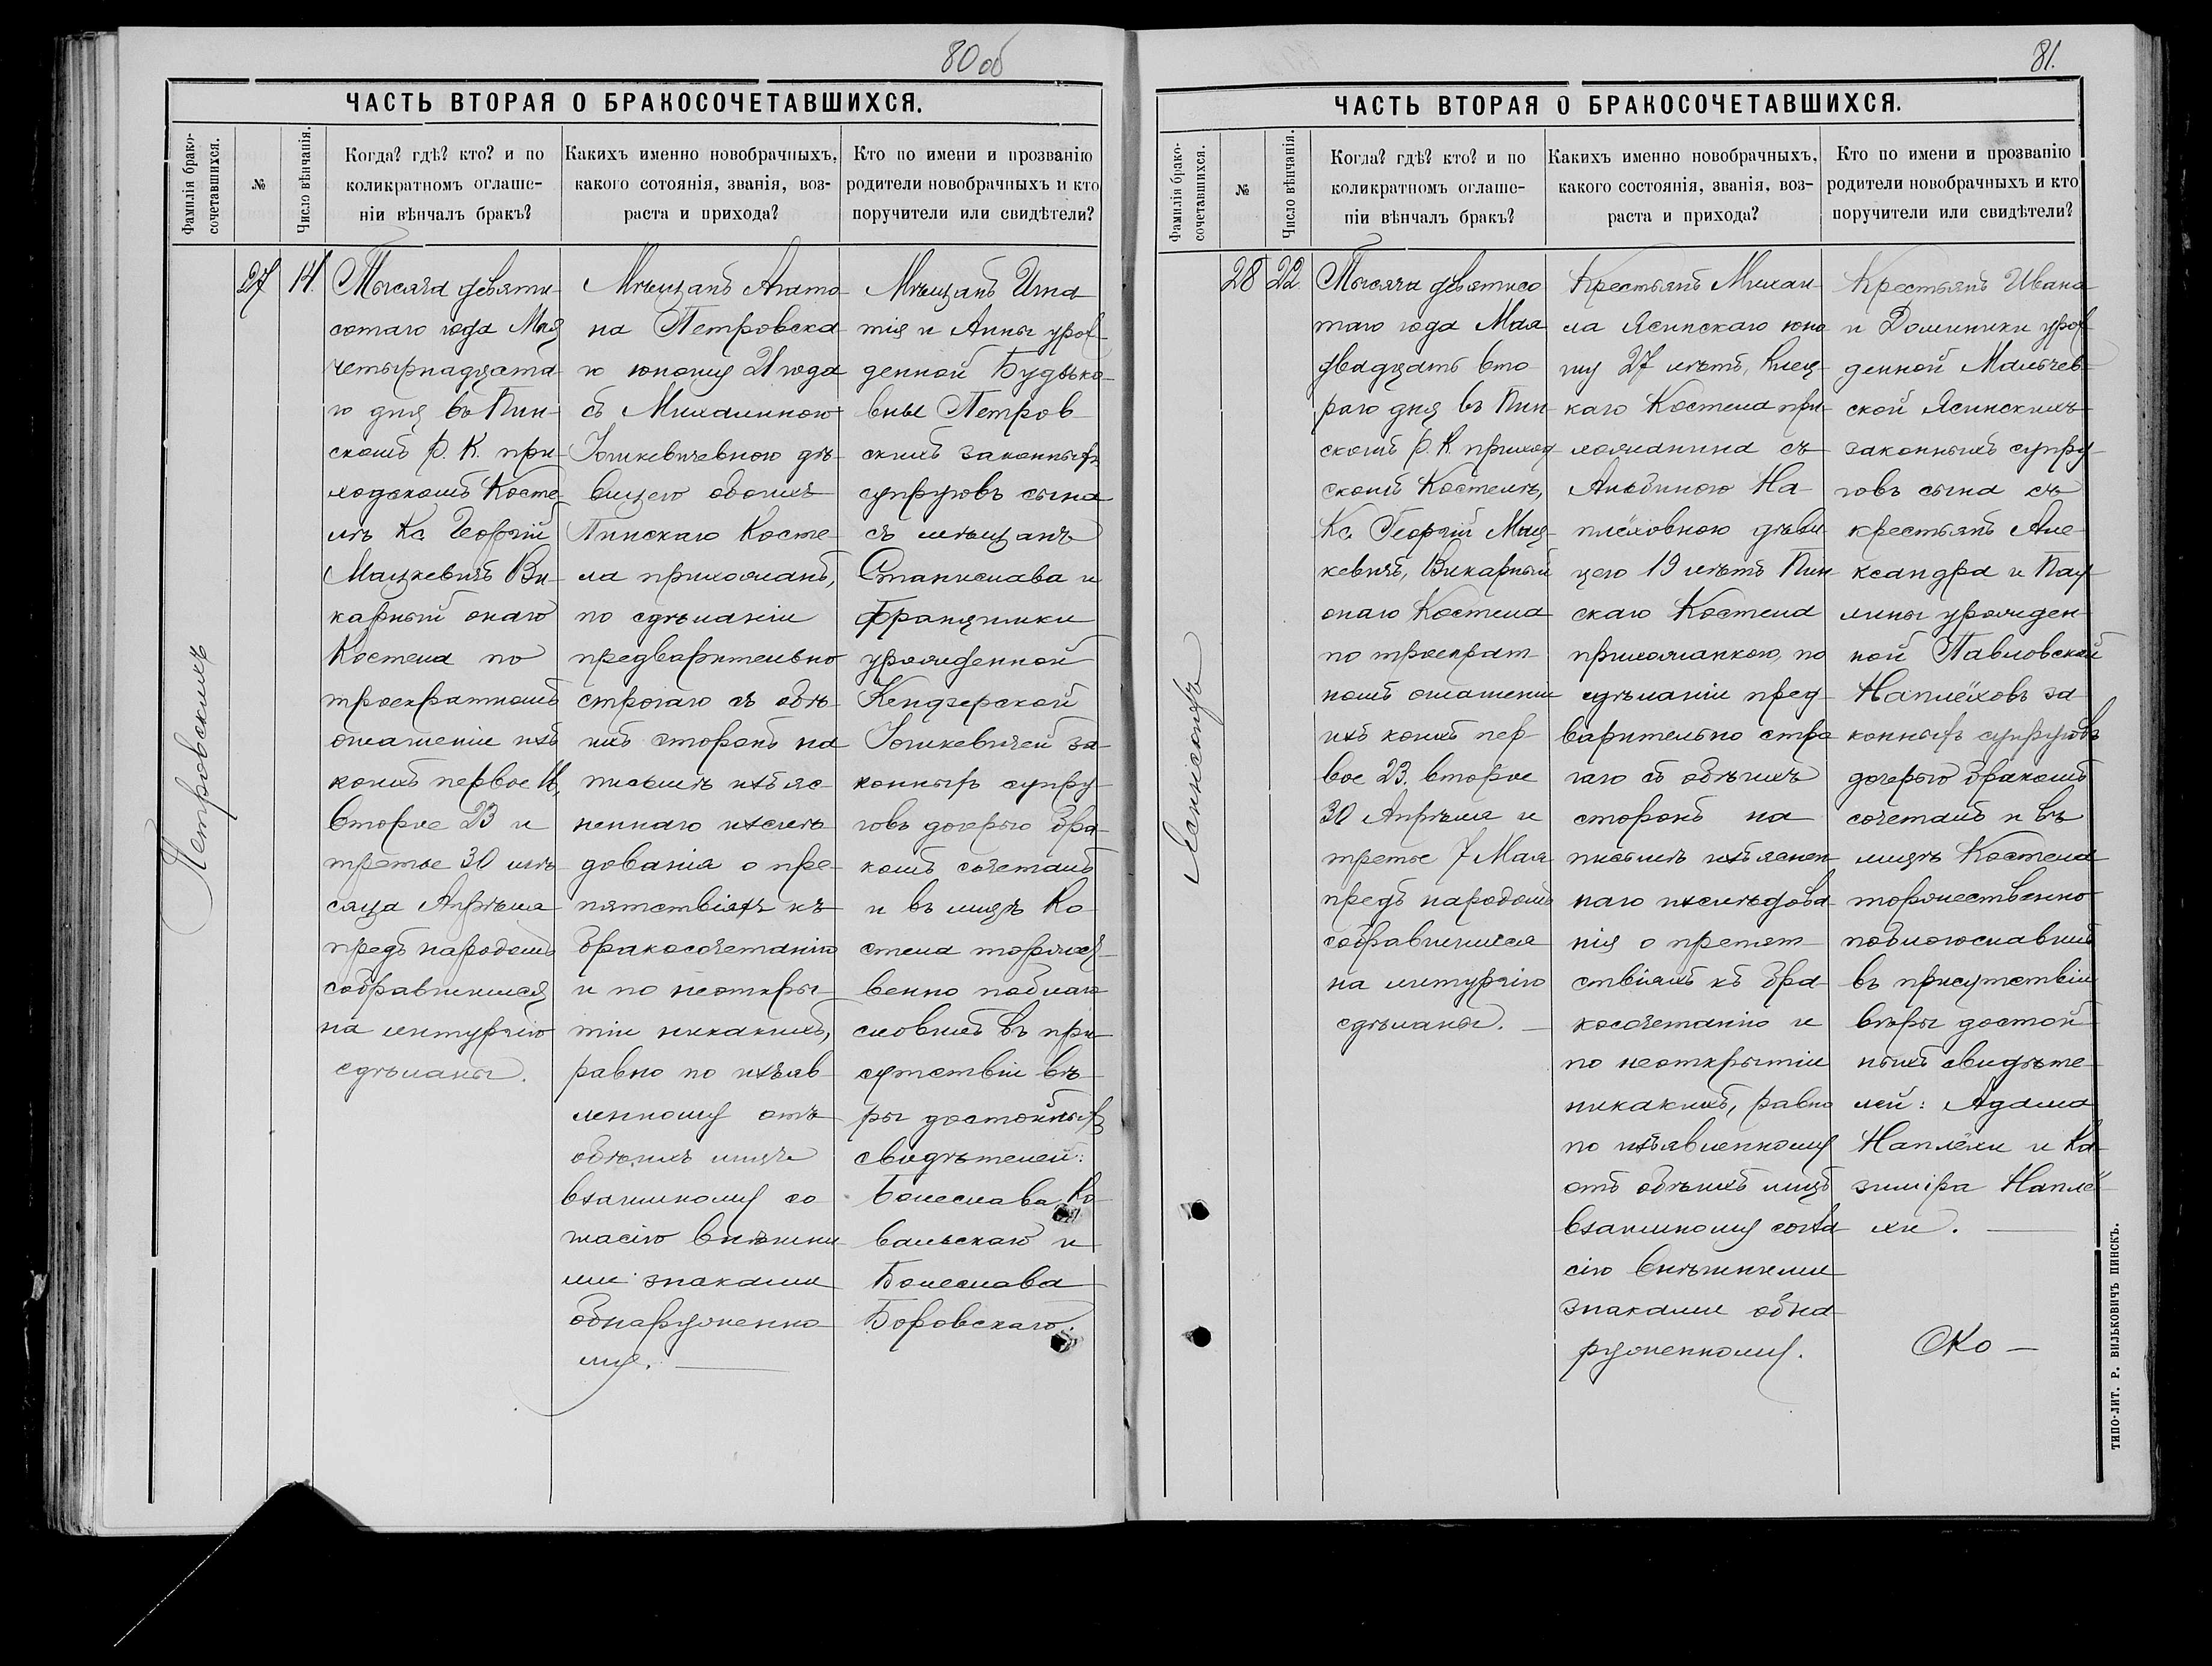 80 об
ЧАСТЬ ВТОРАЯ О БРАКОСОЧЕТАВШИХСЯ.
Фамилія брако-
сочетавшихся.
№
Число вѣнчанія.
Когда? гдѣ? кто? и по
коликратномъ оглаше-
ніи вѣнчалъ бракъ?
Какихъ именно новобрачныхъ,
какого сотоянія, званія, воз-
раста и прихода?
Кто по имени и прозванію
родители новобрачныхъ и кто
поручители или свидѣтели?
Петровскихъ
27
14.
Тысяча девяти
сотаго года Мая
четырнадцата
го дня въ Пин-
скомъ Р. К. при-
ходскомъ Косте-
лѣ Кс. Георгій
Мацкевичъ Ви-
карный онаго
Костела по
троекратномъ
оглашеніи ихъ
коихъ первое
второе 23 и
третье 30 мѣ-
сяца Апрѣля
предъ народомъ
собравшимся
на литургію
сдѣланы.
Мѣщанъ
на Петровска
го юношу 21 года
съ Михалиною
Юшкевичевною дѣ-
вицею обоихъ
Пинскаго Косте-
ла прихожанъ,
по сдѣланіи
предварительно
строгаго съ обѣ-
ихъ сторонъ на
письмѣ изъяс-
неннаго изслѣ-
дованія о пре-
пятствіяхъ къ
бракосочетанію
и по неоткры-
тіи никакихъ,
равно по изъяв
ленному отъ
обѣихъ лицъ
взаимному со
гласію внѣшни
ми знаками
обнаруженно
му.
Мѣщанъ Игна
тія и Анны урож-
денной Будько-
вны Петров-
скихъ законныхъ
супруговъ сына
съ мѣщанъ
Станислава и
Францишки
урожденной
Кендзерской
Юшкевичей за-
конныхъ супру-
говъ дочерью бра-
комъ сочеталъ
и въ лицѣ Ко-
стела торжест-
венно поблаго
словилъ въ при
сутствіи вѣ-
ры достойныхъ
свидѣтелей:
Болеслава Ко-
вальскаго и
Болеслава
Боровскаго.
81.
ЧАСТЬ ВТОРАЯ О БРАКОСОЧЕТАВШИХСЯ.
Фамилія брако-
сочетавшихся.
№
Число вѣнчанія.
Когда? гдѣ? кто? и по
коликратномъ оглаше-
ніи вѣнчалъ бракъ?
Какихъ именно новобрачныхъ,
какого состоянія, званія, воз-
раста и прихода?
Кто по имени и прозванію
родители новобрачныхъ и кто
поручители или свидѣтели?
28
22.
Тысяча девятисо
таго года Мая
двадцать вто-
раго дня въ Пин-
скомъ Р. К. приход
скомъ Костелѣ,
Кс. Георгій Мац-
кевичъ, Викарный
онаго Костела
по троекрат-
номъ оглашеніи
ихъ коихъ пер-
вое 23. второе
30 Апрѣля и
третье 7 Мая
предъ народомъ
собравшимся
на литургію
сдѣланы.
Крестьянъ Михаи
ла Ясинскаго юно
шу 27 лѣтъ, Клец-
каго Костела при-
хожанина съ
Альбиною На-
плёховною дѣви
цею 19 лѣтъ Пин
скаго Костела
прихожанкою, по
сдѣланіи пред-
варительно стро
гаго съ обѣихъ
сторонъ на
письмѣ изъяснен
наго изслѣдова
нія о препят-
ствіяхъ къ бра-
косочетанію и
по неоткрытіи
никакихъ, равно
по изъявленному
отъ обѣихъ лицъ
взаимному согла
сію внѣшними
знаками обна
руженному.
Крестьянъ Ивана
и Доминики урож
денной Мальчев-
ской Ясинскихъ
законныхъ супру-
говъ сына съ
крестьянъ Але-
ксандра и Пау
лины урожден-
ной Павловской
Наплёховъ за-
конныхъ супруговъ
дочерью бракомъ
сочеталъ и въ
лицѣ Костела
торжественно
поблагославилъ
въ присутствіи
вѣры достой-
ныхъ свидѣте-
лей: Адама
Наплёхи и Ка-
зиміра Наплё-
хи.
ТИПО-ЛИТ. Р. ВИЛЬКОВИЧЪ ПИНСКЪ.